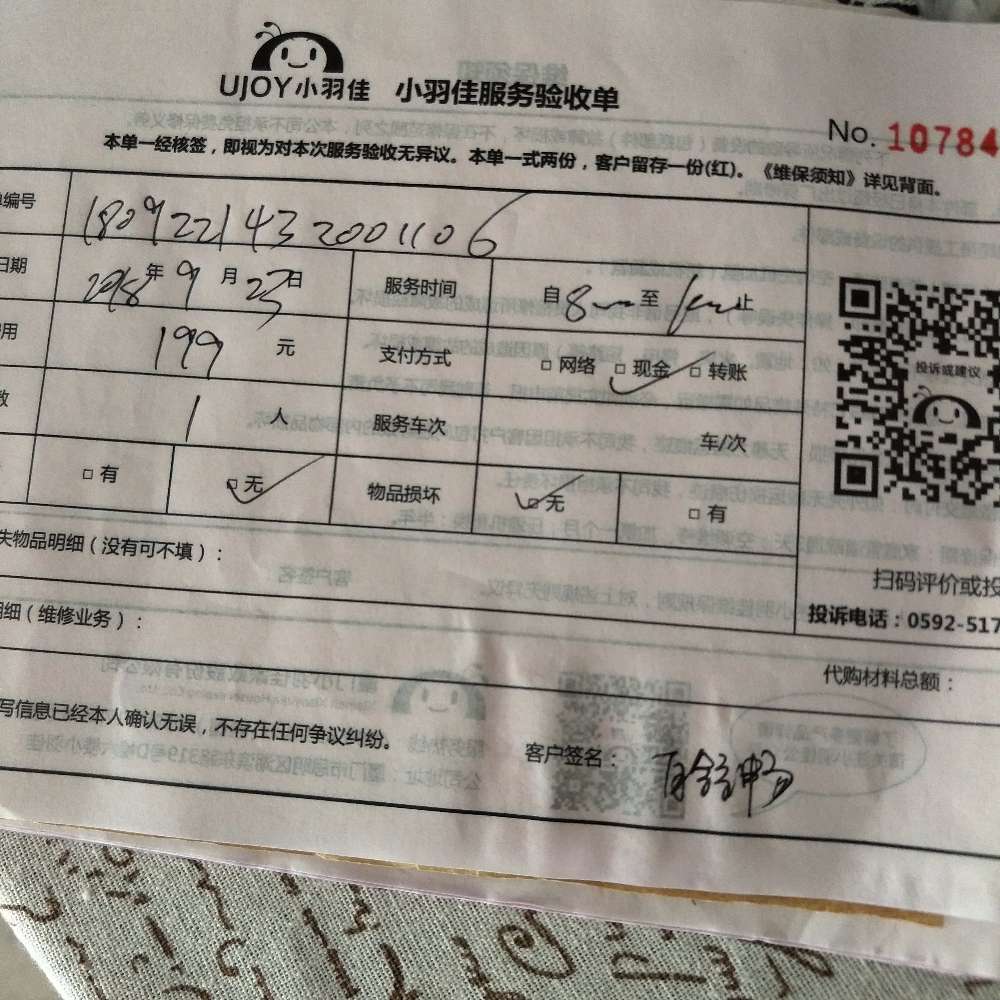 UJOY小羽佳 小羽佳服务验收单
No. 10784
本单一经核签，即视为对本次服务验收无异议。本单一式两份，客户留存一份(红)。《维保须知》详见背面。
单编号 1809221432001106
日期 2018年9月23日 服务时间 自8 至 止
用 199 元 支付方式 □网络 □现金 □转账
数 1 人 服务车次 车/次
□有 □无 物品损坏 □无 □有
投诉或建议
失物品明细（没有可不填）：
扫码评价或投
明细（维修业务）：
投诉电话：0592-517
代购材料总额：
写信息已经本人确认无误，不存在任何争议纠纷。
客户签名：